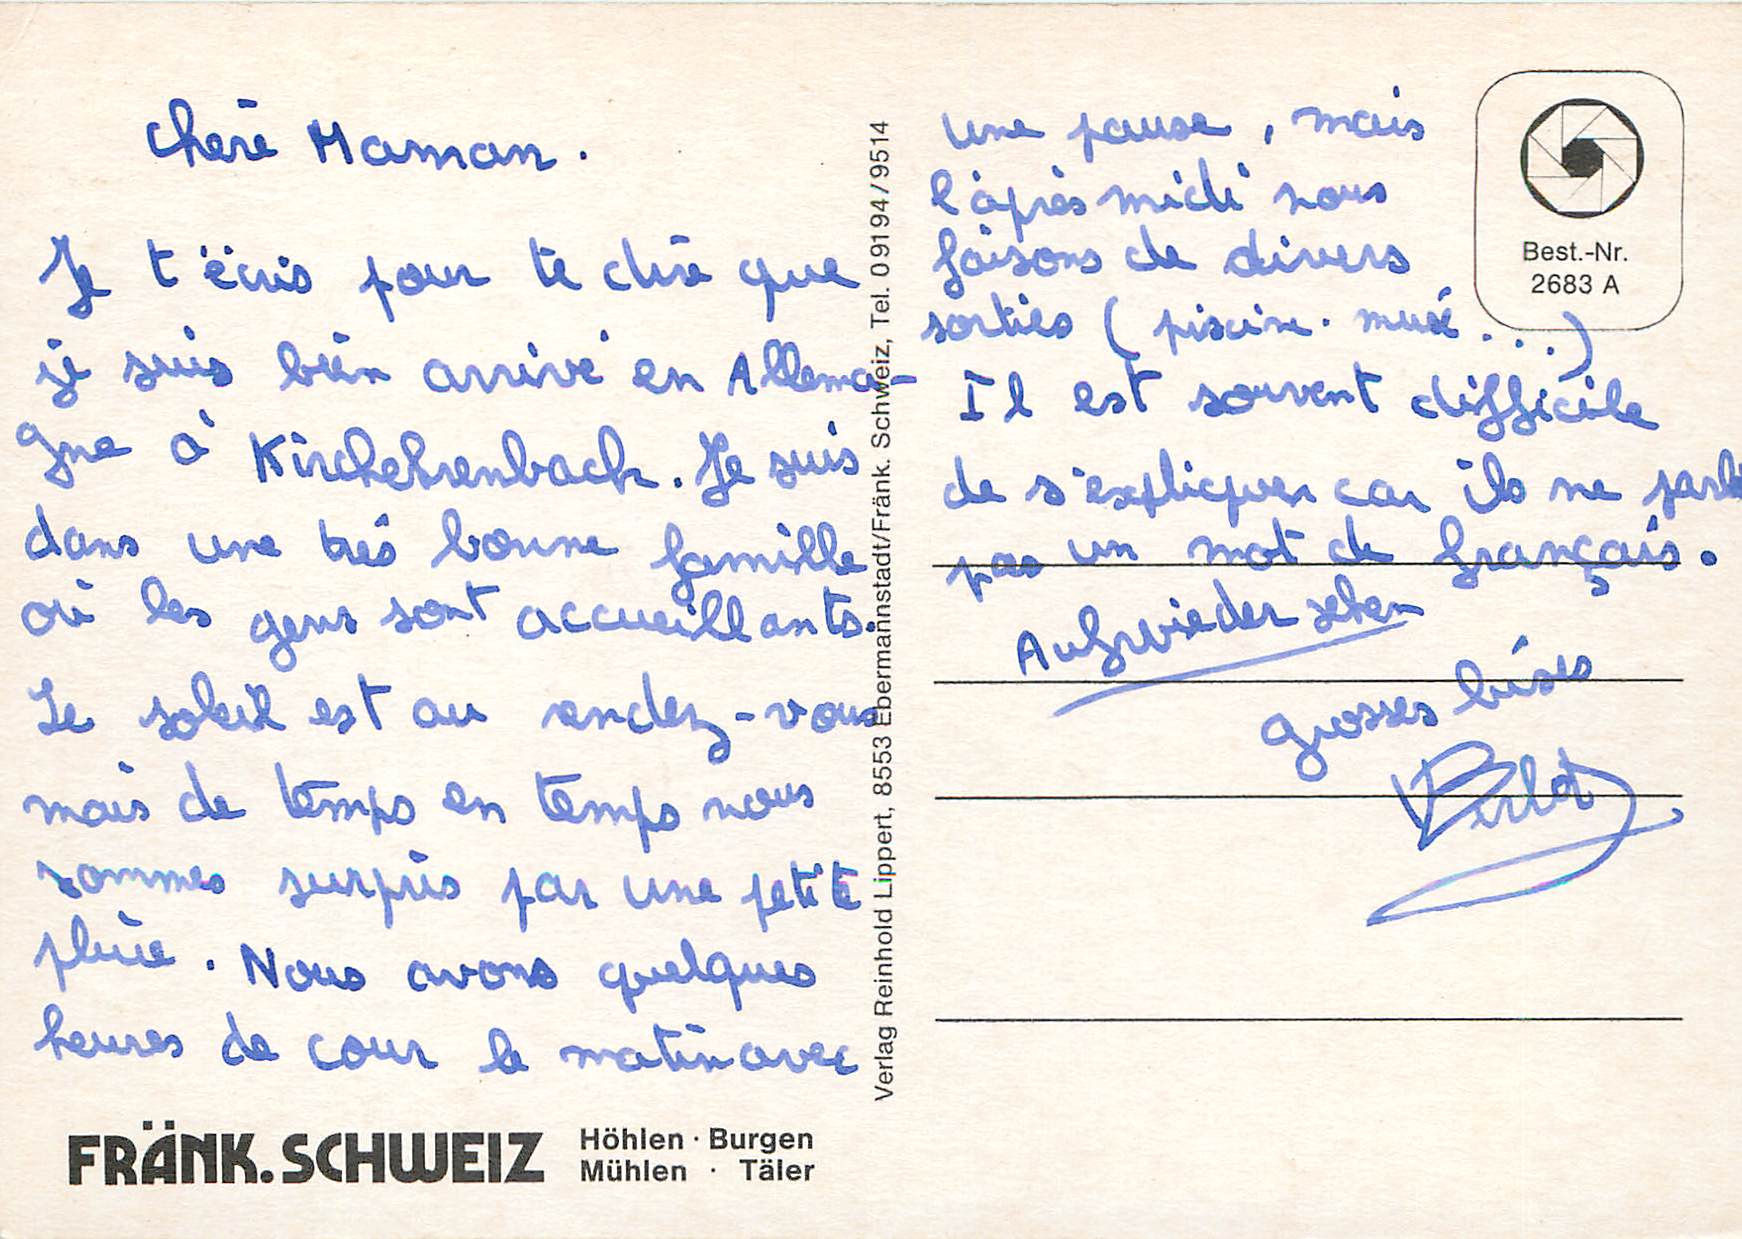 Chère Maman.
Je t'écris pour te dire que
je suis bien arrivé en Allema-
gne à Kirchehrenbach. Je suis
dans une très bonne famille
où les gens sont accueillants.
Le soleil est au rendez-vous
mais de temps en temps nous
sommes surpris par une petite
pluie. Nous avons quelques
heures de cour le matin avec
FRÄNK. SCHWEIZ
Höhlen · Burgen
Mühlen · Täler
Verlag Reinhold Lippert, 8553 Ebermannstadt/Fränk. Schweiz, Tel. 09194/9514
une pause, mais
l'après midi nous
faisons de divers
sorties (piscine. musé...)
Il est souvent difficile
de s'expliquer car ils ne parle
pas un mot de français.
Aufwieder sehen
grosses bises
Best.-Nr.
2683 A